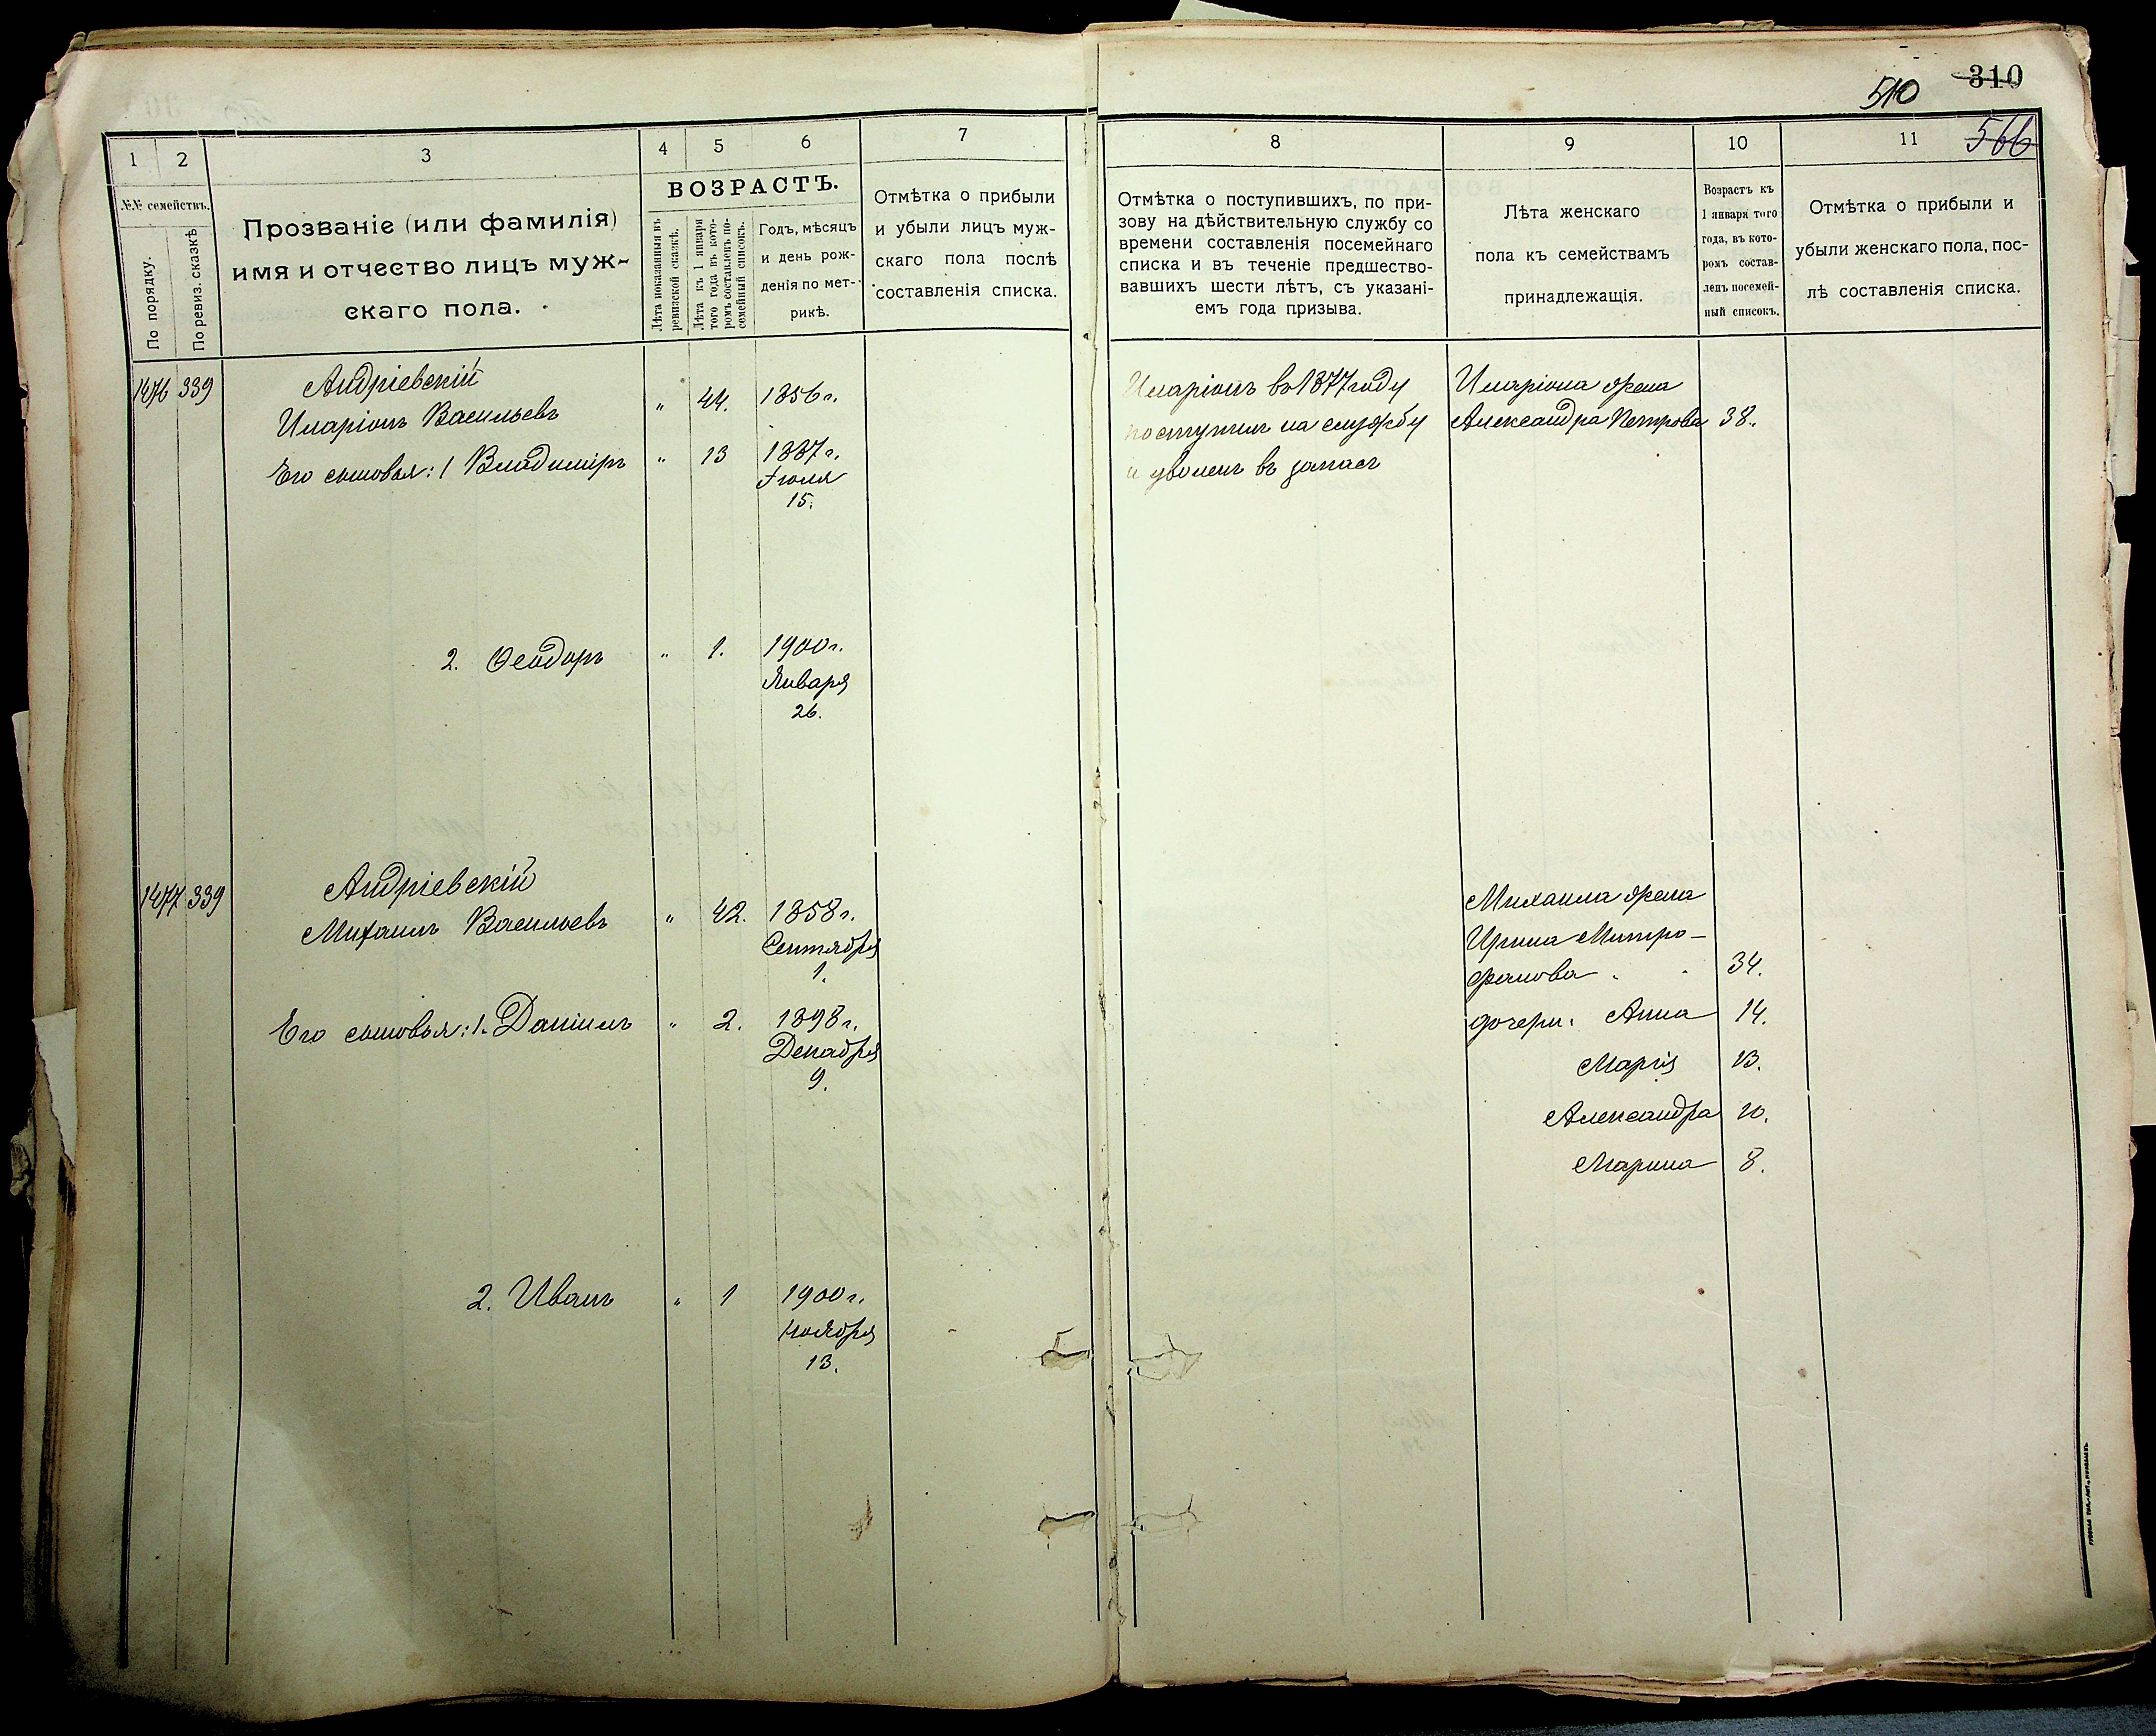 310
510
566
1
2
3
4
5
6
7
№№ семействъ.
По порядку.
По ревиз. сказкѣ
Прозваніе (или фамилія)
имя и отчество лицъ муж-
скаго пола.
ВОЗРАСТЪ.
Лѣта показанныя въ
ревизской сказкѣ.
Лѣта къ 1 января
того года въ кото-
ромъ составленъ по-
семейный списокъ.
Годъ, мѣсяцъ
и день рож-
денія по мет-
рикѣ.
Отмѣтка о прибыли
и убыли лицъ муж-
скаго пола послѣ
составленія списка.
1476 339
Андріевскій
Иларіонъ Васильевъ " 44. 1856 г.
Его сыновья: 1 Владиміръ " 13 1887 г.
Іюля
15.
2. Ѳеодоръ " 1. 1900 г.
Января
26.
1477 339
Андріевскій
Михаилъ Васильевъ " 42. 1858 г.
Сентября
1.
Его сыновья: 1. Даніилъ " 2. 1898 г.
Декабря
9.
2. Иванъ " 1 1900 г.
Ноября
13.
8
9
10
11
Отмѣтка о поступившихъ, по при-
зову на дѣйствительную службу со
времени составленія посемейнаго
списка и въ теченіе предшество-
вавшихъ шести лѣтъ, съ указані-
емъ года призыва.
Лѣта женскаго
пола къ семействамъ
принадлежащія.
Возрастъ къ
1 января того
года, въ кото-
ромъ состав-
ленъ посемей-
ный списокъ.
Отмѣтка о прибыли и
убыли женскаго пола, пос-
лѣ составленія списка.
Иларіонъ въ 1877 году
поступилъ на службу
и уволенъ въ запасъ
Иларіона жена
Александра Петрова 38.
Михаила жена
Ирина Митро-
фанова 34.
дочери: Анна 14.
Марія 13.
Александра 10.
Марина 8.